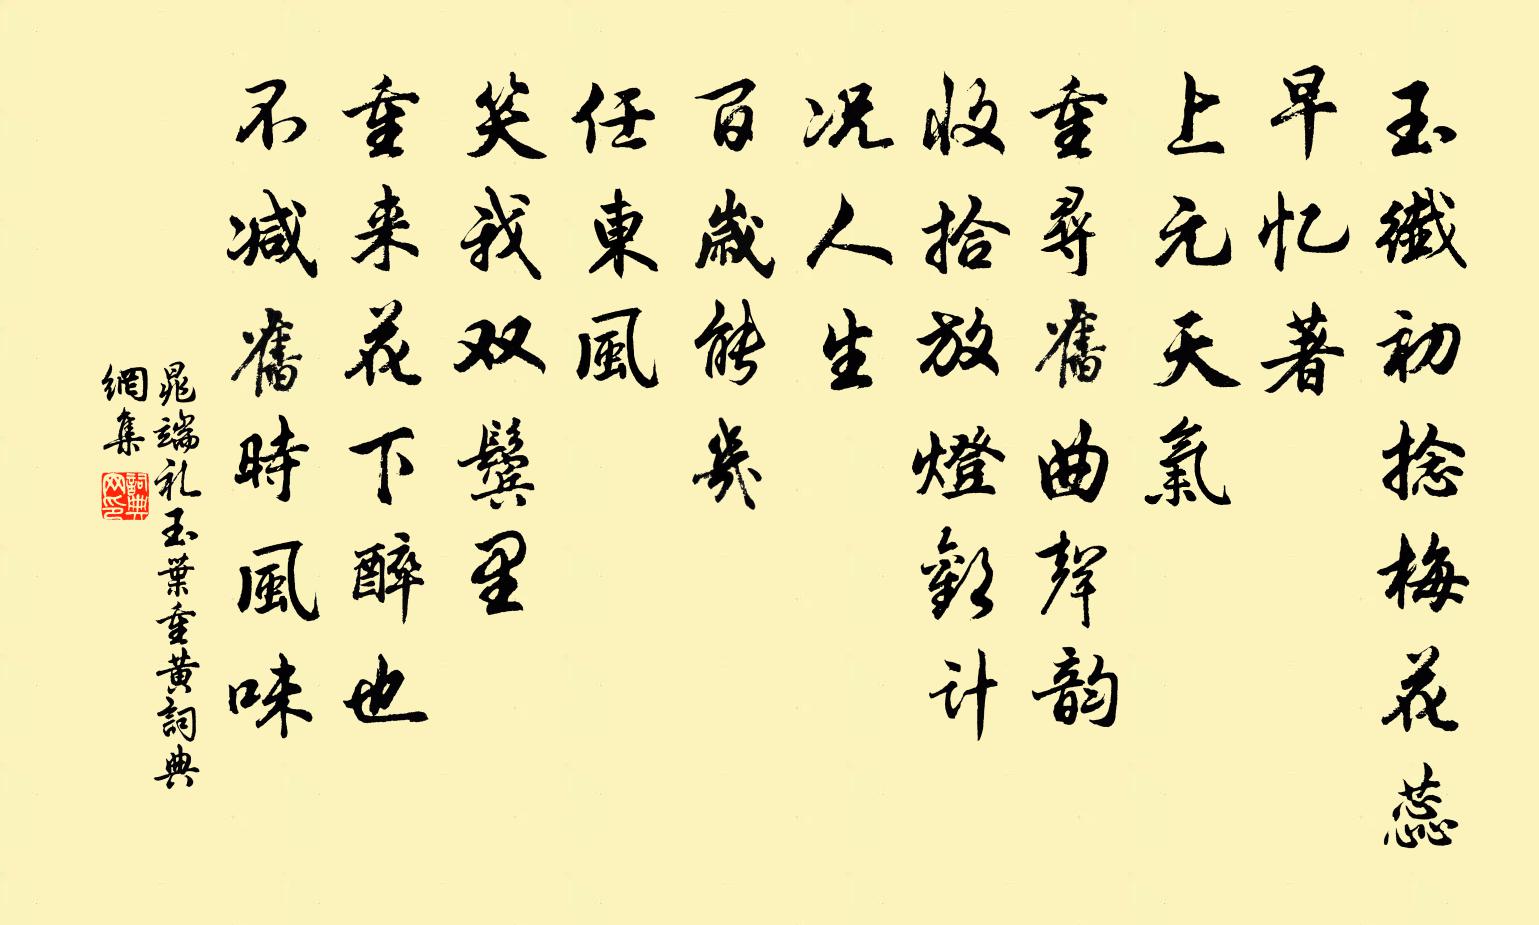 玉纖初捻梅花蕊
早忆著
上元天氣
重尋舊曲聲韵
收拾放燈歡计
况人生
百歲能幾
任東風
笑我双鬓里
重来花下醉也
不减舊時風味
晁端礼玉葉重黄詞典
網集
詞典
网印